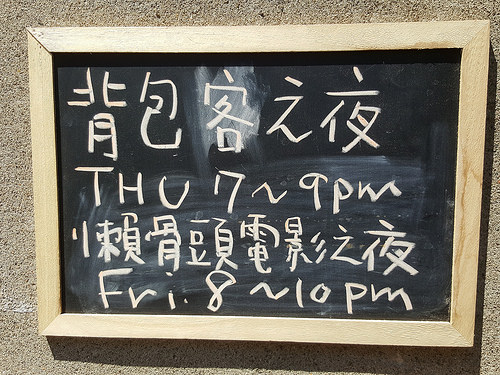 背包客之夜
THU 7~9pm
懶骨頭電影之夜
Fri. 8~10pm